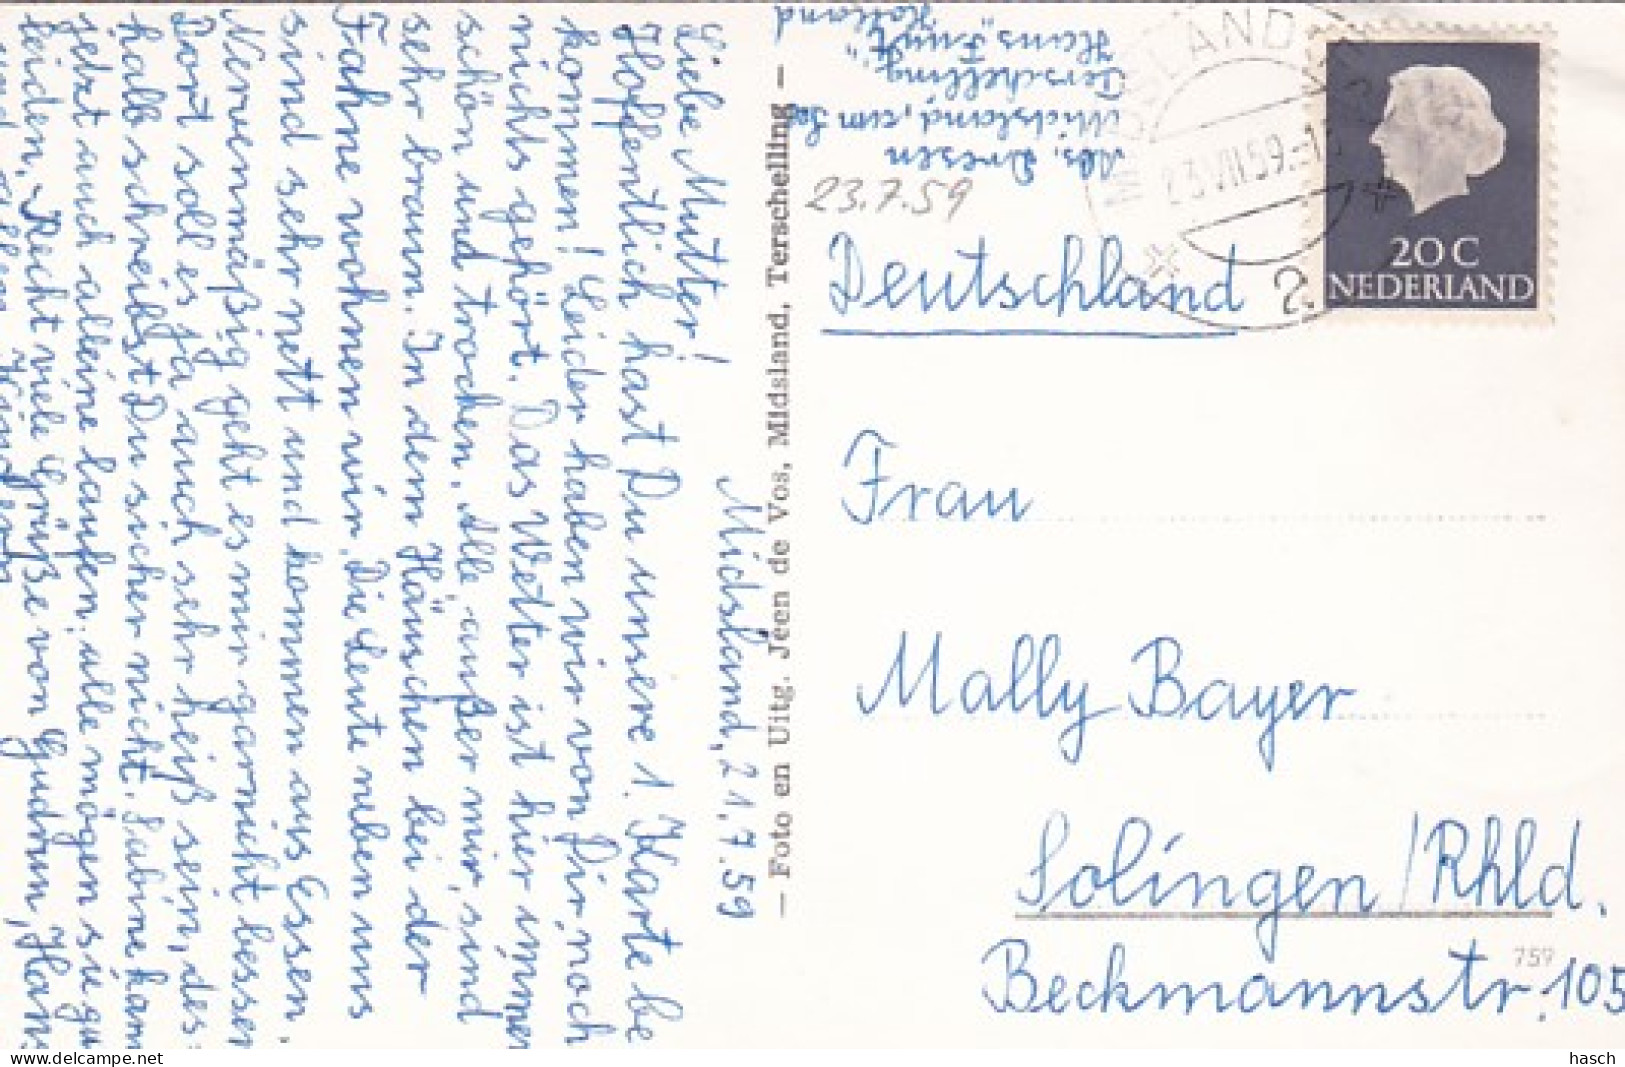 Midsland, 21.7.59
Liebe Mutter!
Hoffentlich hast Du unsere 1. Karte be
kommen! Leider haben wir von Dir noch
nichts gehört. Das Wetter ist hier immer
schön und trocken. Alle, außer mir, sind
sehr braun. In dem Häuschen bei der
Fahne wohnen wir. Die Leute neben uns
sind sehr nett und kommen aus Essen.
Nervenmäßig geht es mir garnicht besser
Dort soll es ja auch sehr heiß sein, des=
halb schreibst Du sicher nicht. Sabine kann
jetzt auch alleine laufen. Alle mögen sie gu
leiden. Recht viele Grüße von Gudrun, Hans
und allen Kindern
— Foto en Uitg. Jeen de Vos, Midsland, Terschelling —
Abs. Dresen
Midsland, am See
Terschelling,
Haus "
Holland
23.7.59
MIDSLAND
23 VII 59
2
20 C
NEDERLAND
Deutschland
Frau
Mally Bayer
Solingen/Rhld.
Beckmannstr. 105
759
hasch